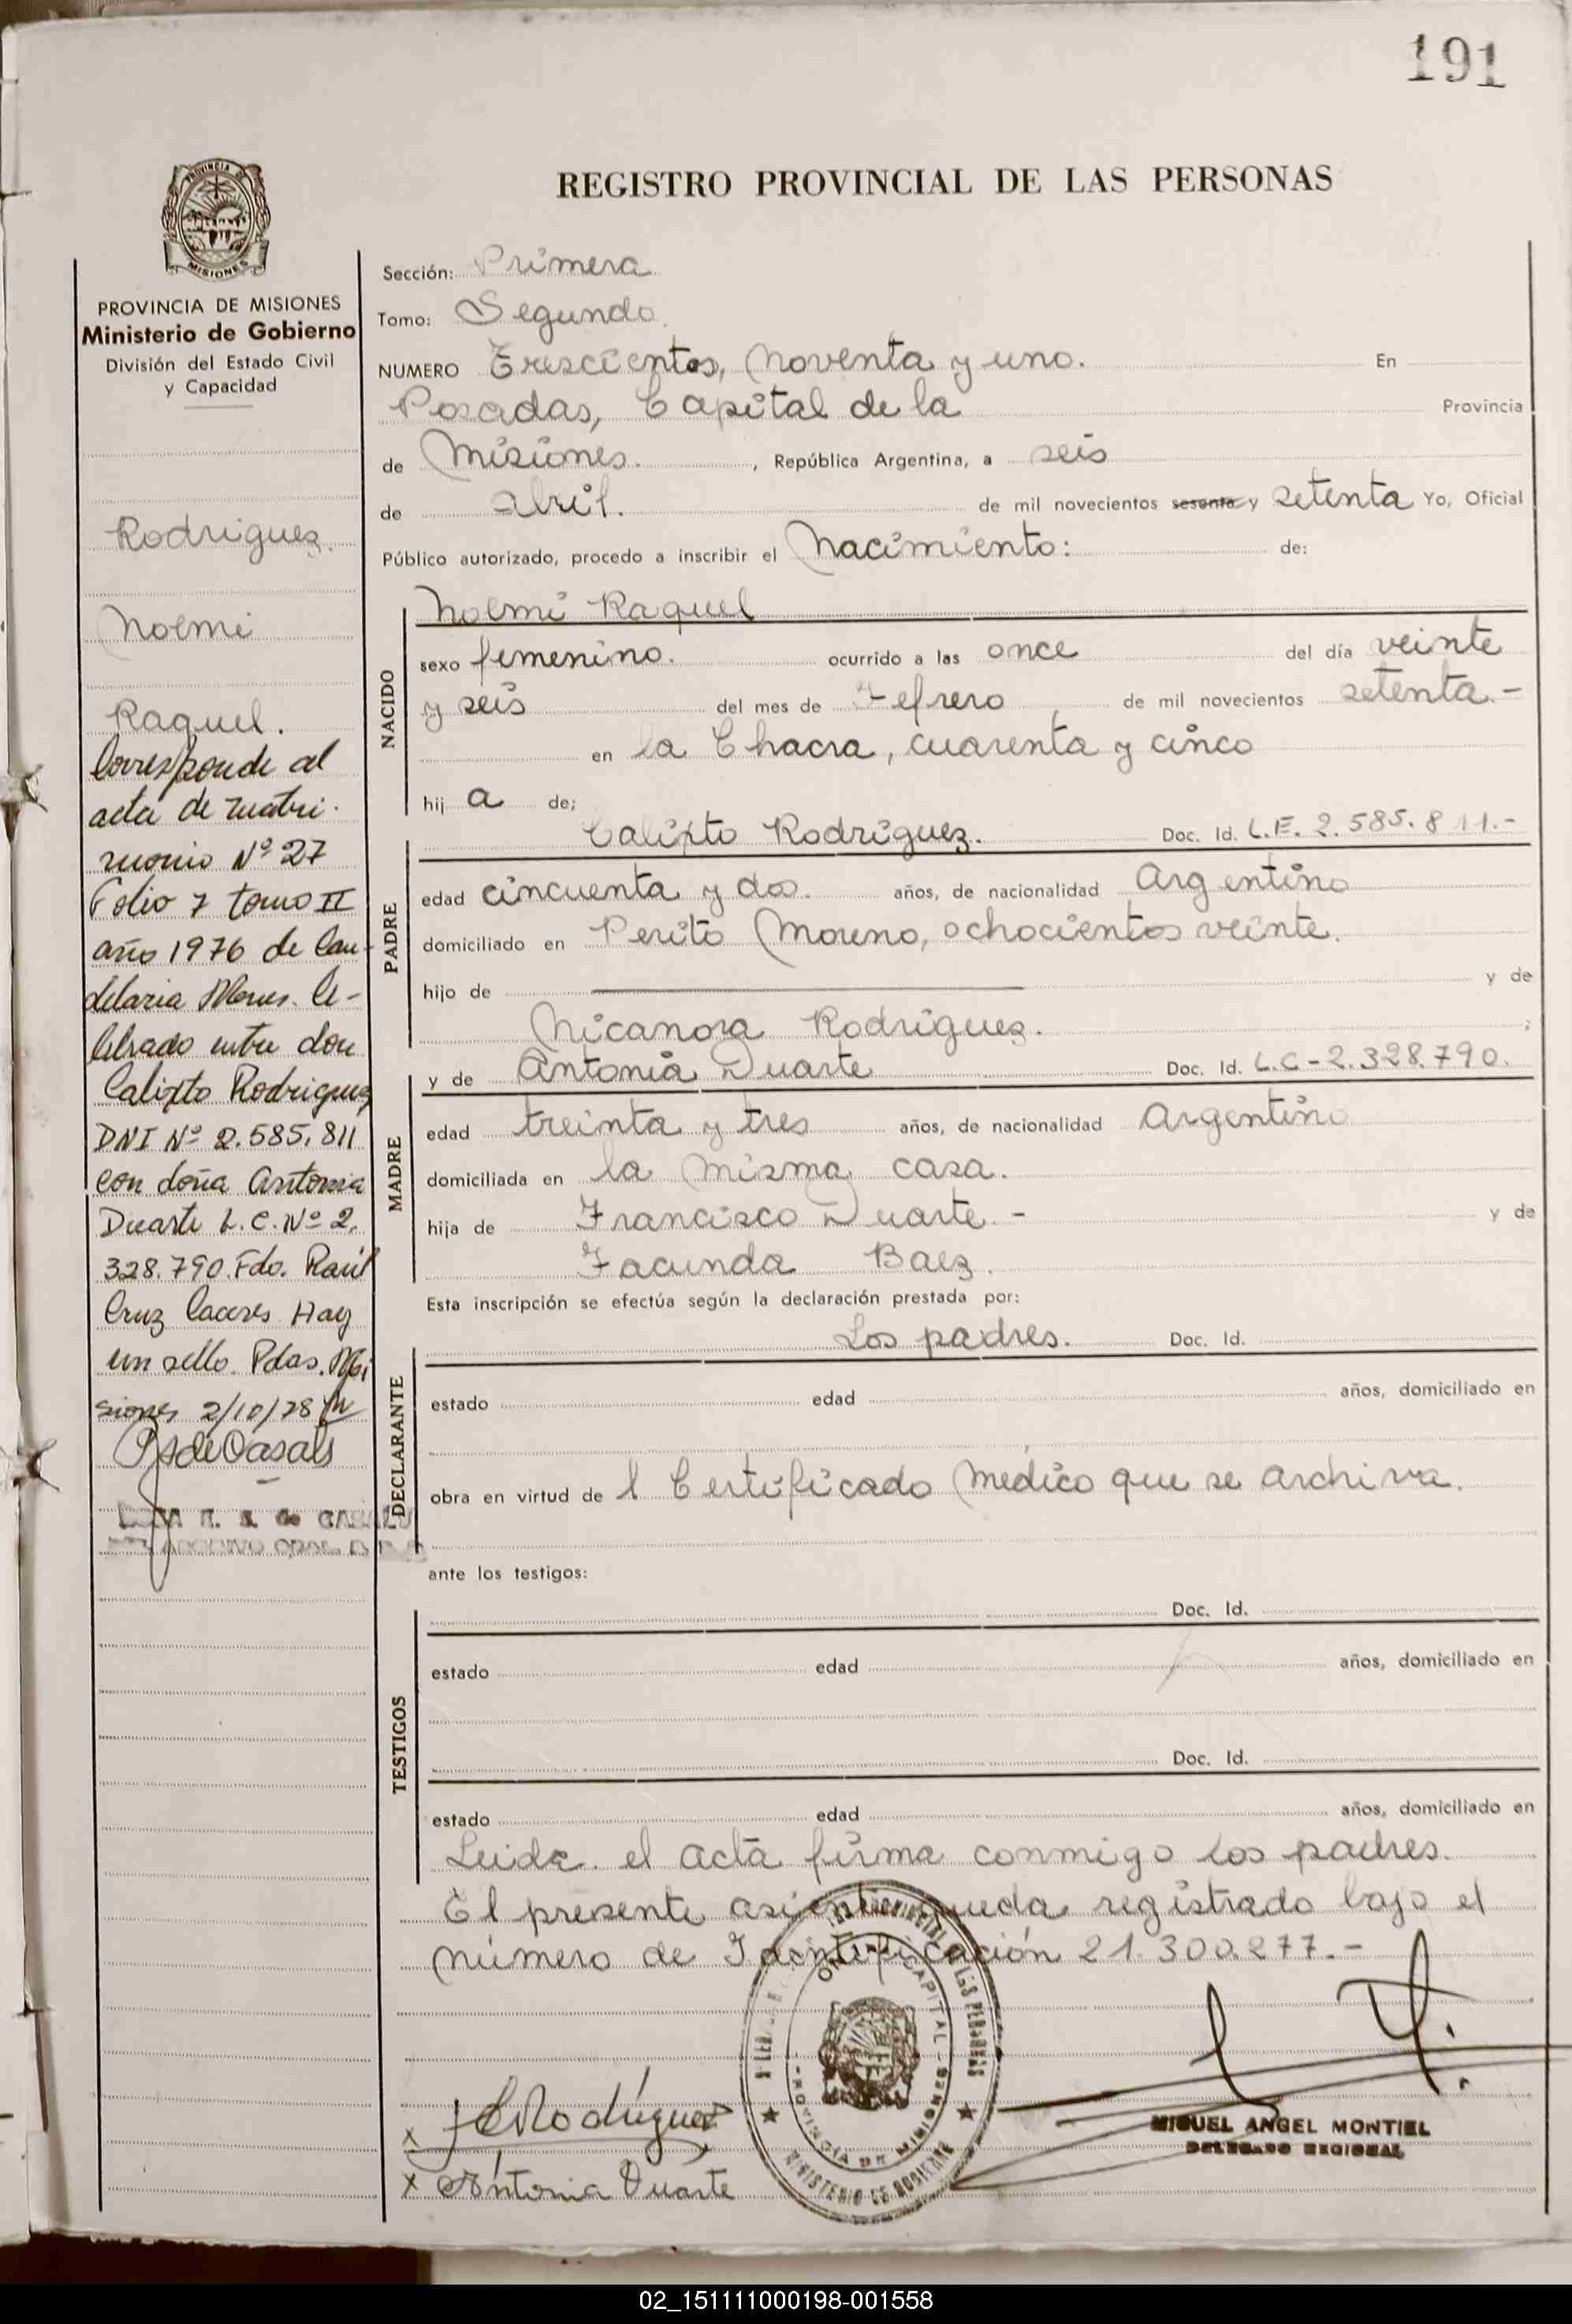 191
REGISTRO PROVINCIAL DE LAS PERSONAS
PROVINCIA DE
MISIONES
PROVINCIA DE MISIONES
Ministerio de Gobierno
División del Estado Civil
y Capacidad
Rodriguez.
Noemi
Raquel.
Corresponde al
acta de matri-
monio Nº 27
Folio 7 tomo II
año 1976 de Can-
delaria Mnes. Ce-
lebrado entre don
Calixto Rodriguez
DNI Nº 2.585.811
con doña Antonia
Duarte L.C. Nº 2.
328.790. Fdo. Raúl
Cruz Caceres. Hay
un sello. Pdas. Mi
siones 2/10/78
de Casals
Sección: Primera
Tomo: Segundo.
NUMERO Trescientos, Noventa y uno. En
Posadas, Capital de la Provincia
de Misiones. , República Argentina, a seis
de abril. de mil novecientos sesenta y setenta Yo, Oficial
Público autorizado, procedo a inscribir el Nacimiento: de:
NACIDO
Noemi Raquel
sexo femenino. ocurrido a las once del día veinte
y seis del mes de Fefrero de mil novecientos setenta.-
en la Chacra, cuarenta y cinco
hij a de;
PADRE
Calixto Rodriguez. Doc. Id. L.E. 2.585.811.-
edad cincuenta y dos. años, de nacionalidad Argentino
domiciliado en Perito Moreno, ochocientos veinte.
hijo de y de
Nicanora Rodriguez. ;
MADRE
y de Antonia Duarte Doc. Id. L.C-2.328.790.
edad treinta y tres años, de nacionalidad Argentino
domiciliada en la misma casa.
hija de Francisco Duarte.- y de
Facunda Baez.
Esta inscripción se efectúa según la declaración prestada por:
DECLARANTE
Los padres. Doc. Id.
estado edad años, domiciliado en
obra en virtud de l Certificado Medico que se archiva.
ante los testigos:
TESTIGOS
Doc. Id.
estado edad años, domiciliado en
Doc. Id.
estado edad años, domiciliado en
Leida el acta firma conmigo los padres.
El presente asiento queda registrado bajo el
número de Identificación 21.300.277.-
CAPITAL
PROVINCIA DE MISIONES
MINISTERIO DE GOBIERNO
x Rodriguez
x Antonia Duarte
MIGUEL ANGEL MONTIEL
DELEGADO REGIONAL
02_151111000198-001558